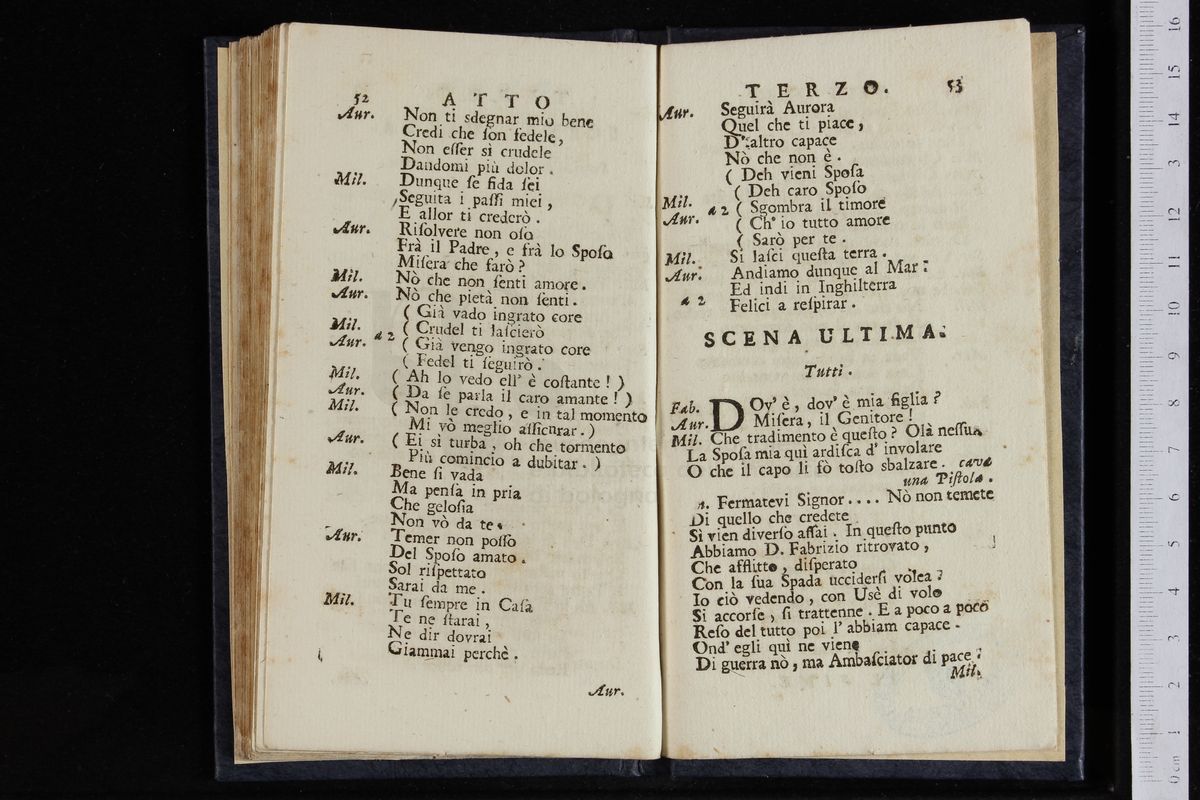 52 ATTO
Aur. Non ti sdegnar mio bene
Credi che ſon fedele,
Non eſſer sì crudele
Dandomi più dolor.
Mil. Dunque ſe fida ſei
Seguita i paſſi miei,
E allor ti crederò.
Aur. Riſolvere non oſo
Frà il Padre, e frà lo Spoſo
Miſera che farò?
Mil. Nò che non ſenti amore.
Aur. Nò che pietà non ſenti.
( Già vado ingrato core
Mil. ( Crudel ti laſcierò
Aur. a 2 ( Già vengo ingrato core
( Fedel ti ſeguirò.
Mil. ( Ah lo vedo ell' è coſtante! )
Aur. ( Da ſe parla il caro amante! )
Mil. ( Non le credo, e in tal momento
Mi vò meglio aſſicurar. )
Aur. ( Ei si turba, oh che tormento
Più comincio a dubitar. )
Mil. Bene ſi vada
Ma penſa in pria
Che geloſia
Non vò da te.
Aur. Temer non poſſo
Del Spoſo amato.
Sol riſpettato
Sarai da me.
Mil. Tu ſempre in Caſa
Te ne ſtarai,
Ne dir dovrai
Giammai perchè.
Aur.
TERZO. 53
Aur. Seguirà Aurora
Quel che ti piace,
D' altro capace
Nò che non è.
( Deh vieni Spoſa
( Deh caro Spoſo
Mil. a 2 ( Sgombra il timore
Aur. ( Ch' io tutto amore
( Sarò per te.
Mil. Si laſci queſta terra.
Aur. Andiamo dunque al Mar:
Ed indi in Inghilterra
a 2 Felici a reſpirar.
SCENA ULTIMA.
Tutti.
Fab. DOv' è, dov' è mia figlia?
Aur. Miſera, il Genitore!
Mil. Che tradimento è queſto? Olà neſſun
La Spoſa mia quì ardiſca d' involare
O che il capo li fò toſto sbalzare. cava
una Piſtola.
n. Fermatevi Signor.... Nò non temete
Di quello che credete
Si vien diverſo aſſai. In queſto punto
Abbiamo D. Fabrizio ritrovato,
Che afflitto, diſperato
Con la ſua Spada ucciderſi volea?
Io ciò vedendo, con Usè di volo
Si accorſe, ſi trattenne. E a poco a poco
Reſo del tutto poi l' abbiam capace.
Ond' egli quì ne viene
Di guerra nò, ma Ambaſciator di pace.
Mil.
0 cm 1 2 3 4 5 6 7 8 9 10 11 12 13 14 15 16